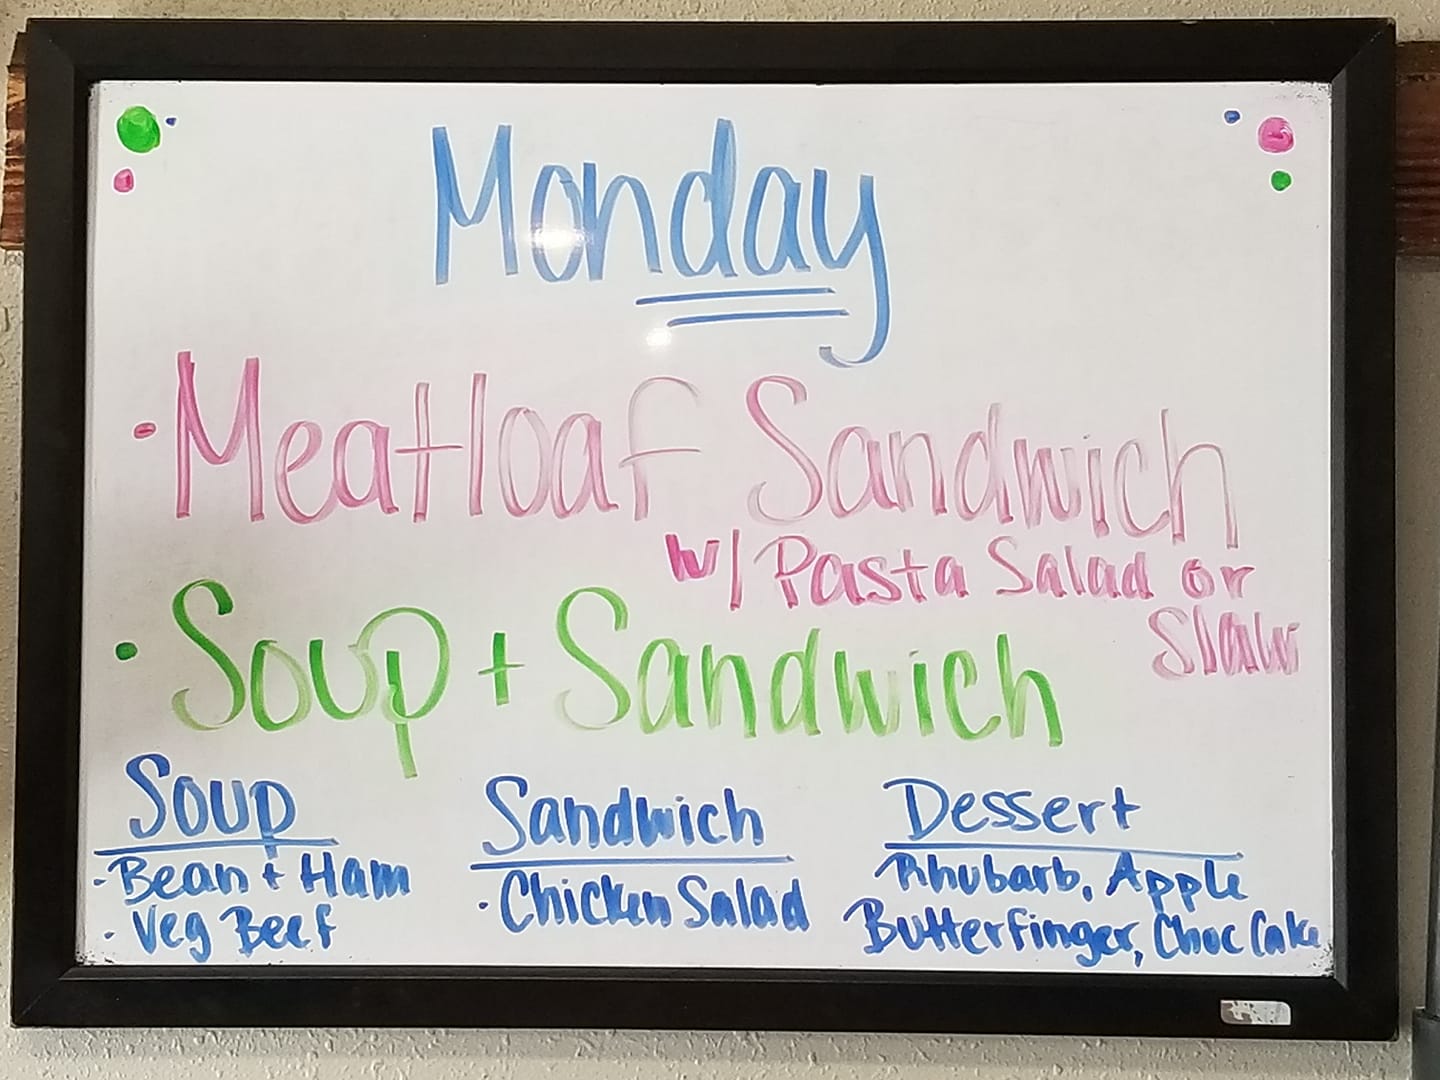 Monday
• Meatloaf Sandwich
w/ Pasta Salad or
Slaw
• Soup + Sandwich
Soup
- Bean + Ham
- Veg Beef
Sandwich
• Chicken Salad
Dessert
Rhubarb, Apple
Butterfinger, Choc Cake